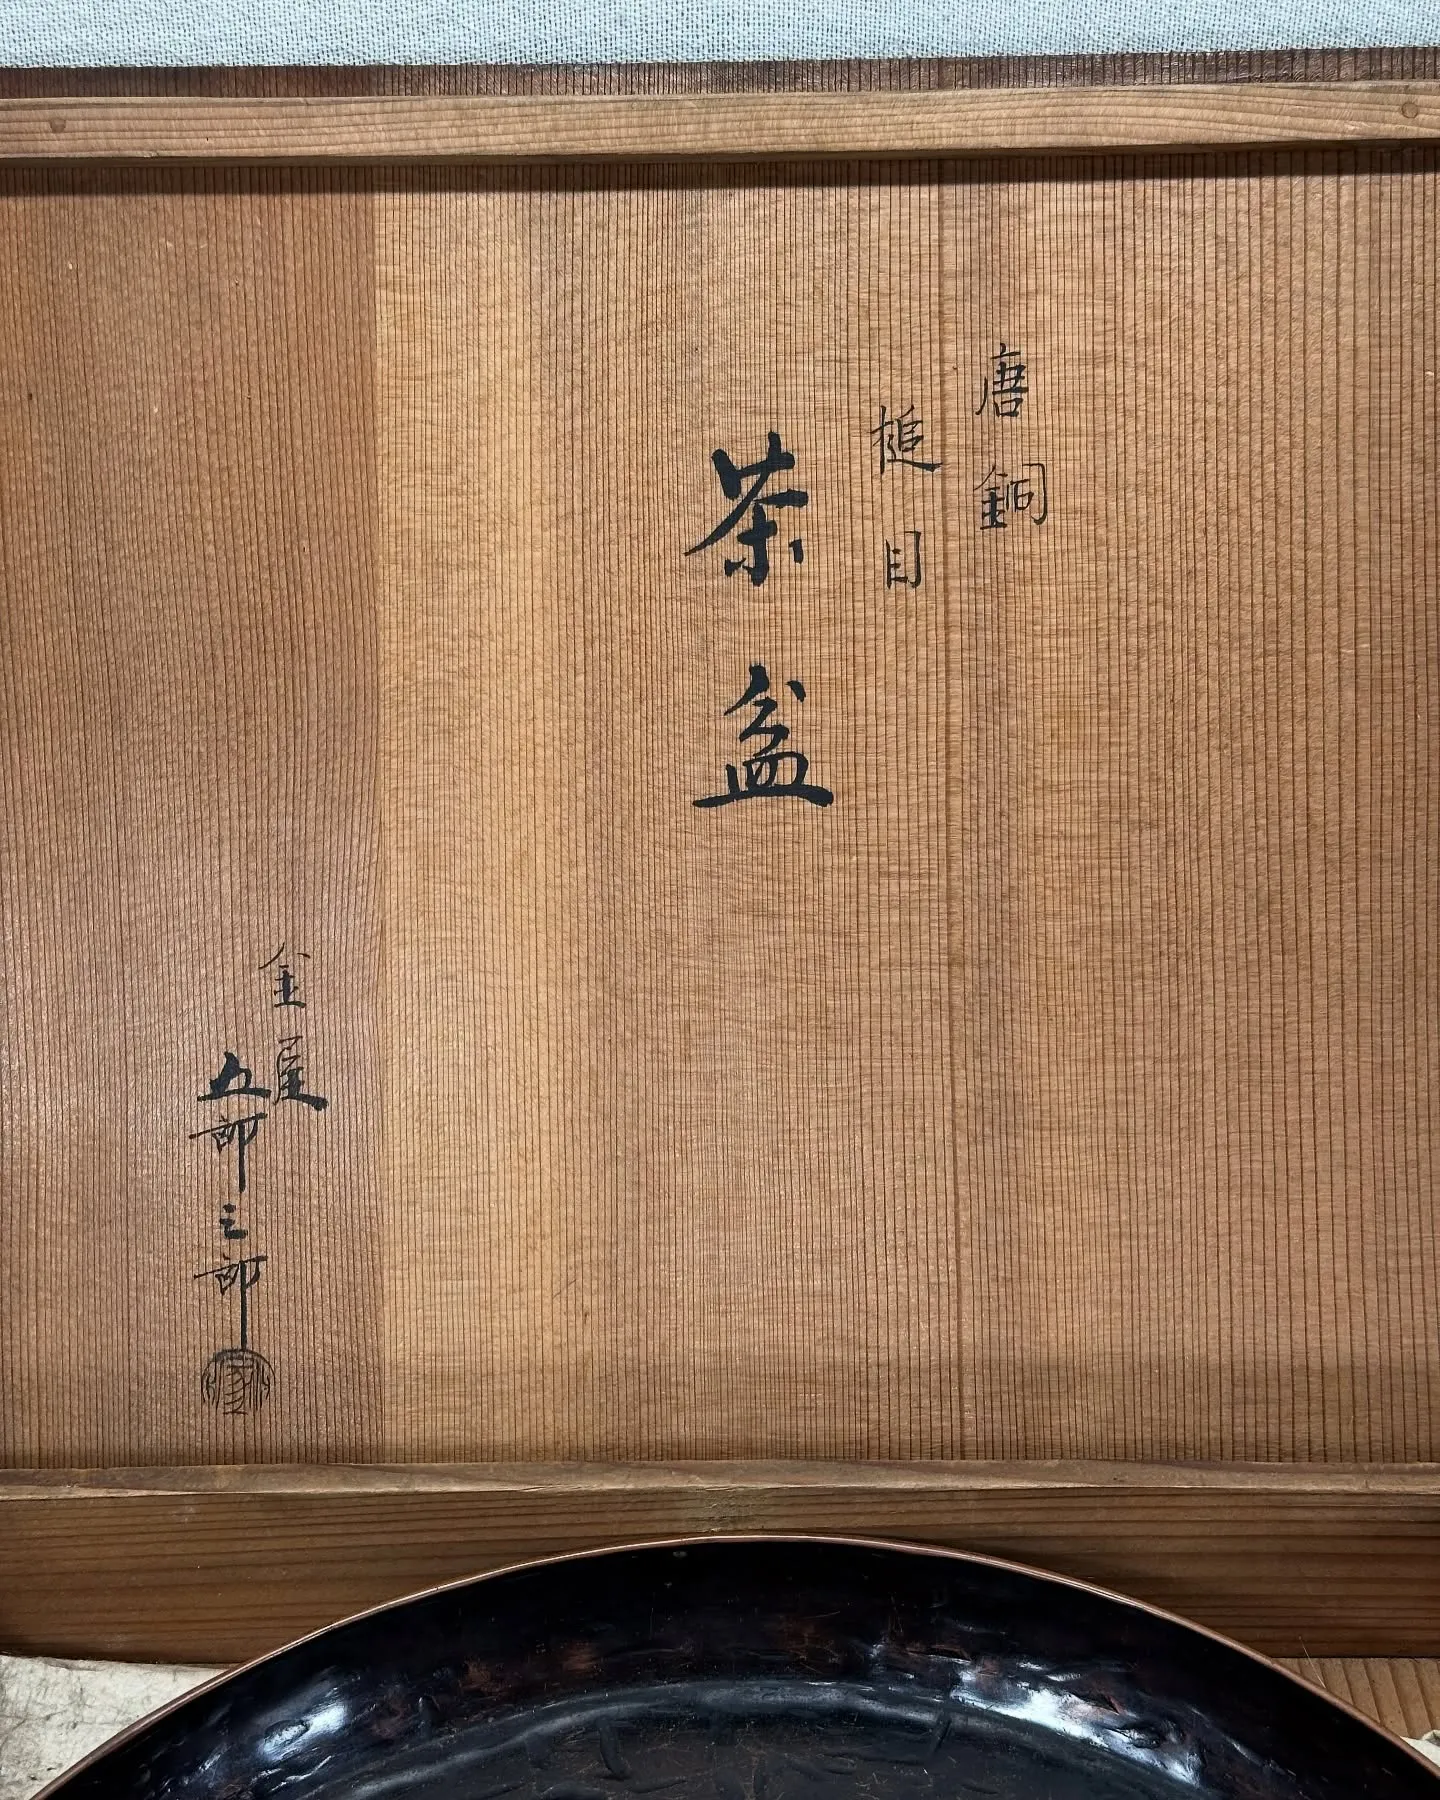 唐銅
槌目
茶盆
金屋
五郎三郎